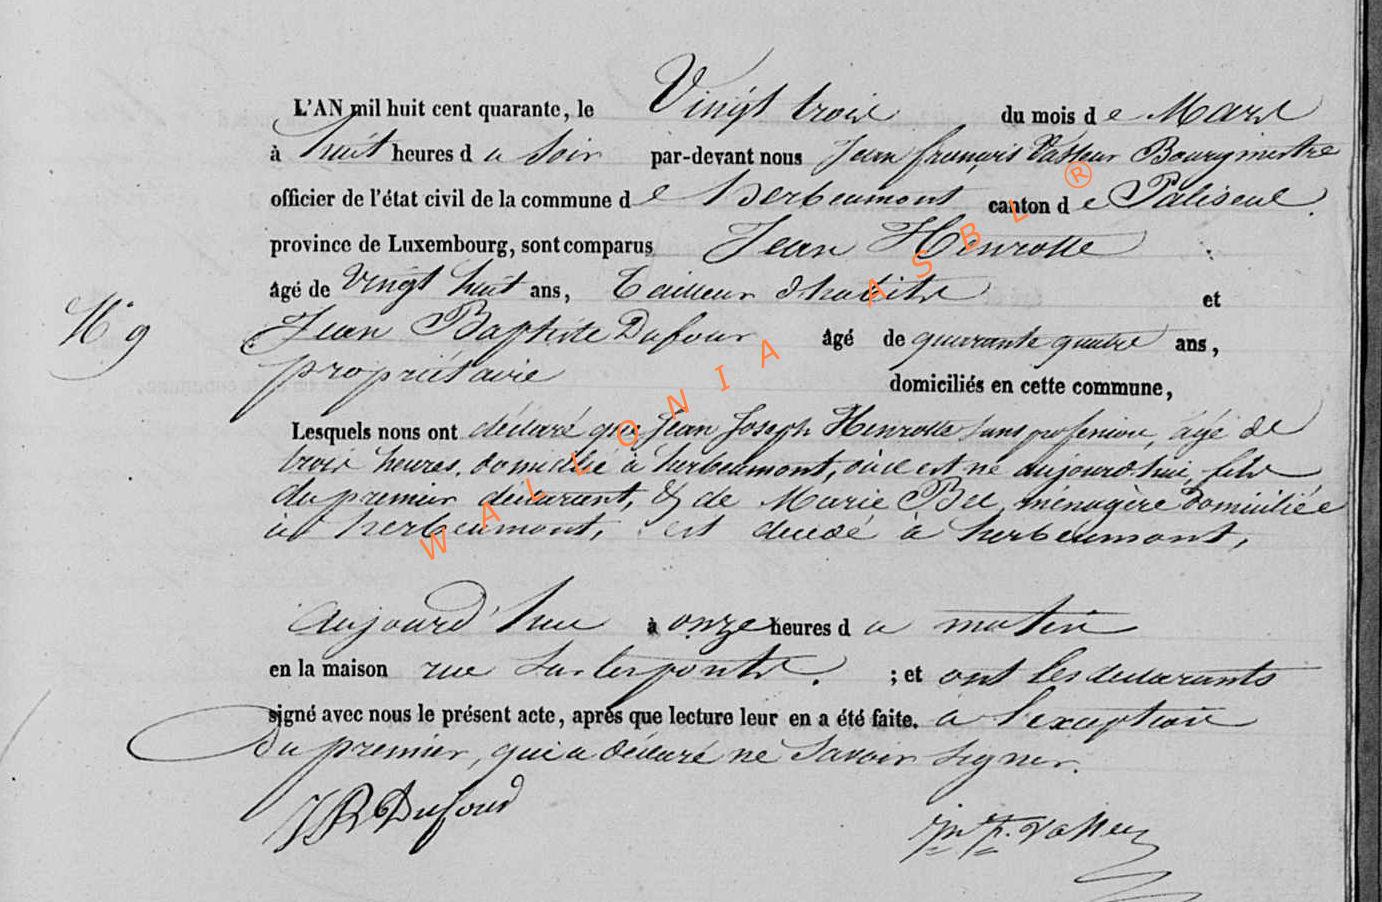 L'AN mil huit cent quarante, le Vingt trois du mois d e Mars
à huit heures d u Soir par-devant nous Jean françois Vasseur Bourgmestre
officier de l'état civil de la commune d e herbeumont canton d e Paliseul.
province de Luxembourg, sont comparus Jean Henrotte
âgé de vingt huit ans, Tailleur d'habits et
N° 9
Jean Baptiste Dufour âgé de quarante quatre ans,
propriétaire domiciliés en cette commune,
Lesquels nous ont déclaré que Jean Joseph Henrotte sans profession, âgé de
trois heures, domicilié à herbeumont, où il est né aujourd'hui, fils
du premier déclarant, & de Marie ménagère domiciliée
à herbeumont, est décédé à herbeumont,
aujourd'hui à onze heures d u matin
en la maison rue sur les ponts. ; et ont les déclarants
signé avec nous le présent acte, après que lecture leur en a été faite. a l'exception
du premier, qui a déclaré ne Savoir signer.
JB Dufour
J. F. Vasseur
WALLONIA ASBL ®